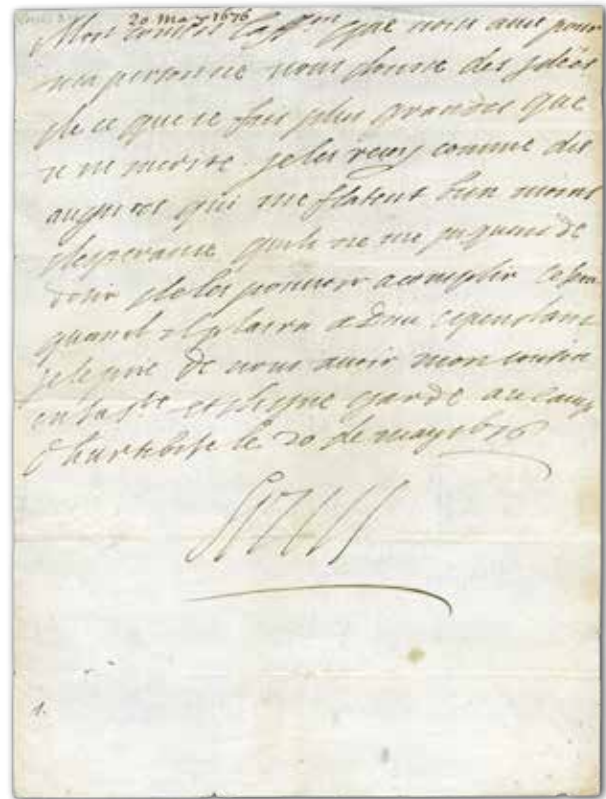 20 may 1676
Mon cousin l'aff.on que vous aves pour
ma personne vous donne des jdées
de ce que ie fais plus grandes que
ie ne merite. je les reçoy comme des
augures qui me flatent bien moins
desperance quils ne me piquent de
desir de les pouvoir acomplir ce sera
quand il plaira a Dieu cependant
je le prie de vous avoir mon cousin
en sa s.te et digne garde au camp
d'hurtebise le 20 de may 1676
Louis
1.